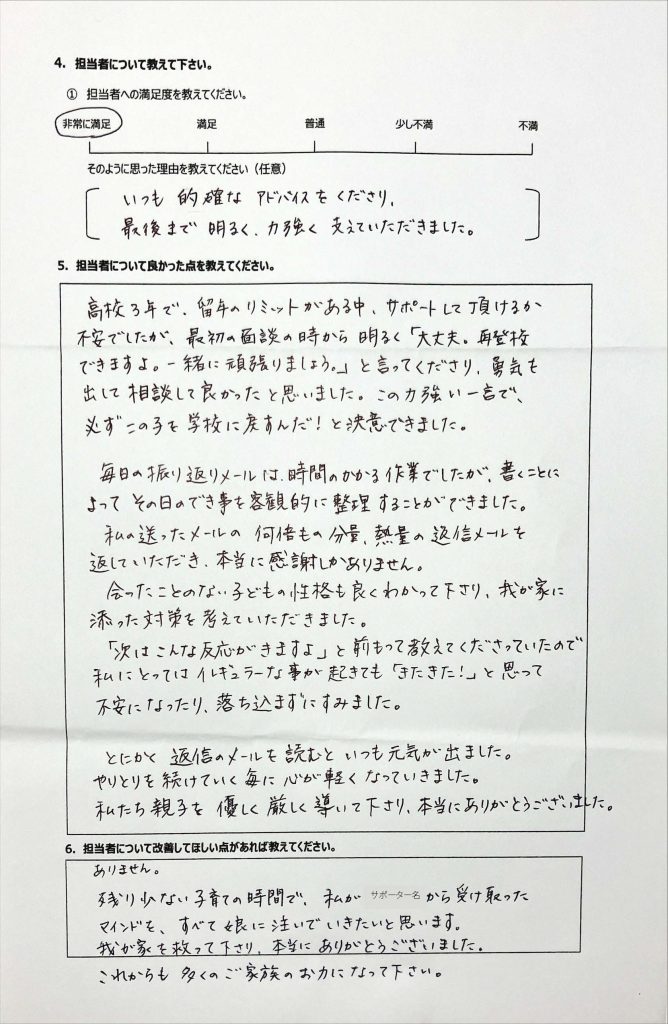 4．担当者について教えて下さい。
① 担当者への満足度を教えてください。
非常に満足 満足 普通 少し不満 不満
そのように思った理由を教えてください（任意）
いつも 的確な アドバイスをくださり、
最後まで 明るく、力強く 支えていただきました。
5．担当者について良かった点を教えてください。
高校3年で、留年のリミットがある中、サポートして頂けるか
不安でしたが、最初の面談の時から 明るく「大丈夫。再登校
できますよ。一緒に頑張りましょう。」と言ってくださり、勇気を
出して 相談して良かったと思いました。この力強い一言で、
必ずこの子を学校に戻すんだ！と決意できました。
毎日の振り返りメールは、時間のかかる作業でしたが、書くことに
よって その日のでき事を客観的に整理することができました。
私の送ったメールの 何倍もの分量、熱量の返信メールを
返していただき、本当に感謝しかありません。
会ったことのない子どもの性格も良くわかって下さり、我が家に
添った対策を考えていただきました。
「次はこんな反応がきますよ」と前もって教えてくださっていたので
私にとってはイレギュラーな事が起きても「きたきた！」と思って
不安になったり、落ち込まずにすみました。
とにかく 返信のメールを読むと いつも元気が出ました。
やりとりを続けていく毎に 心が軽くなっていきました。
私たち親子を 優しく厳しく導いて下さり、本当にありがとうございました。
6．担当者について改善してほしい点があれば教えてください。
ありません。
残り少ない子育ての時間で、私が サポーター名 から受け取った
マインドを、すべて娘に注いでいきたいと思います。
我が家を救って下さり、本当にありがとうございました。
これからも 多くのご家族のお力になって下さい。